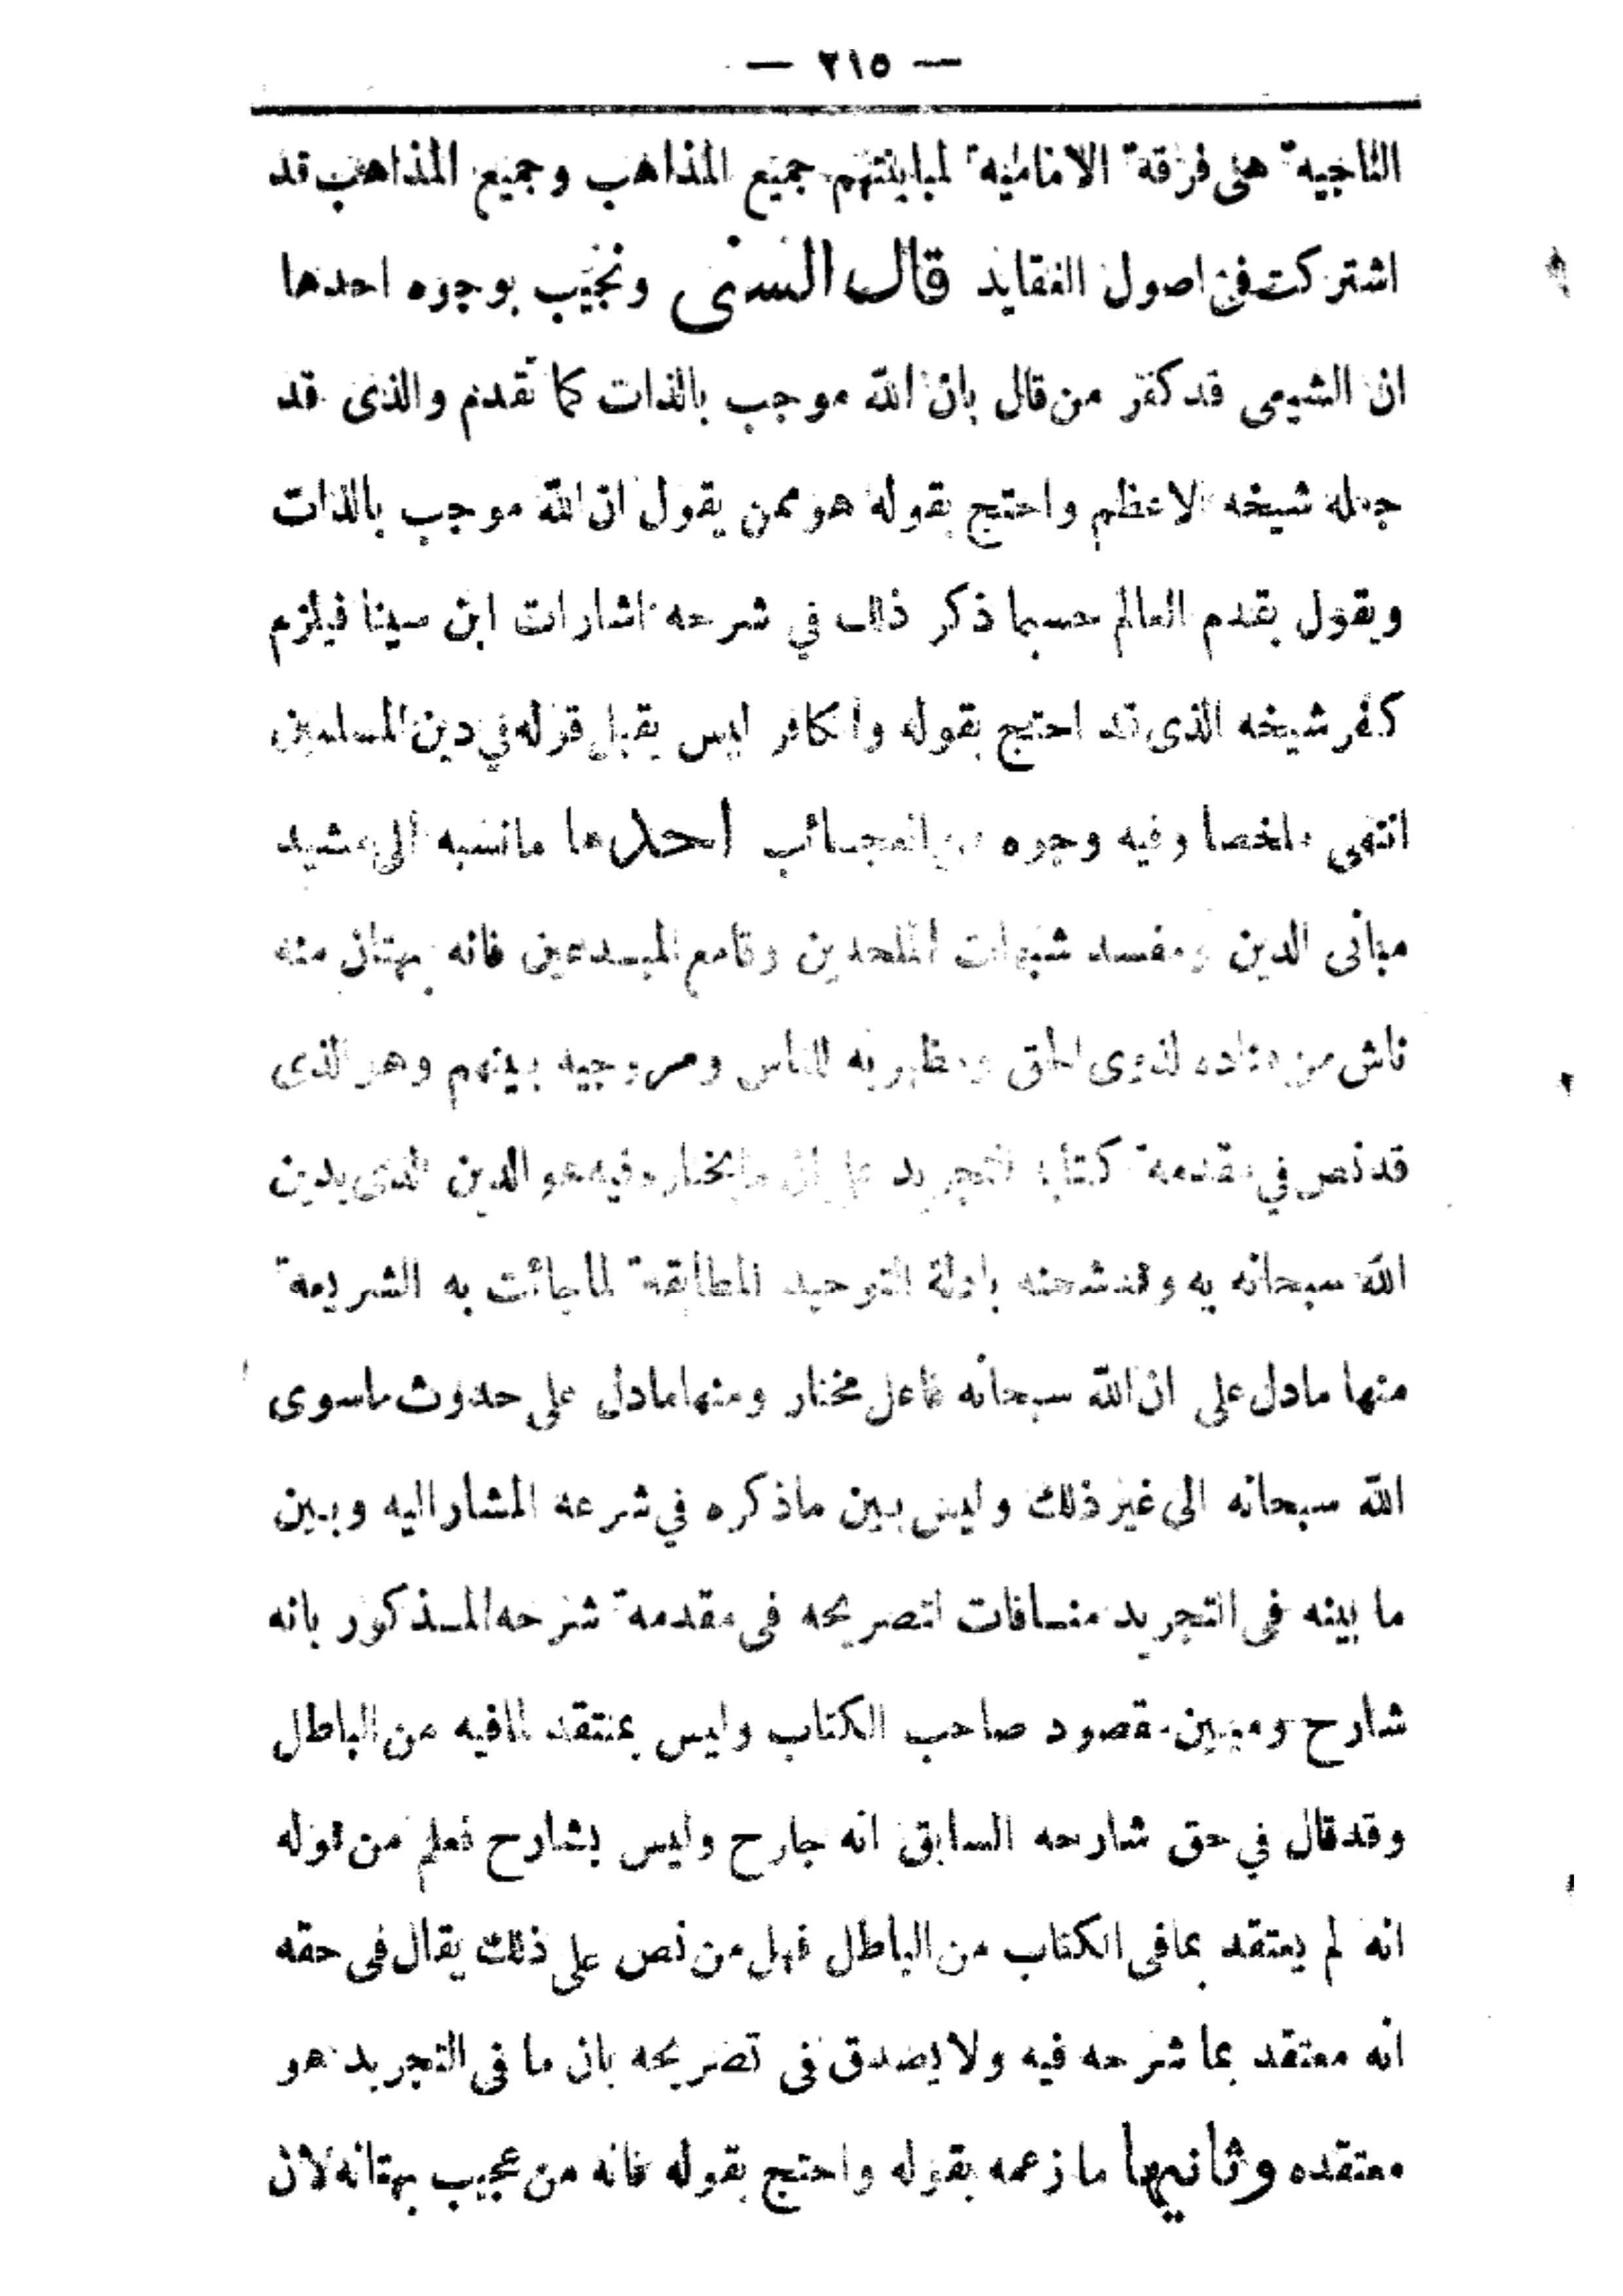 — ٢١٥ —
الناجية هى فرقة الامامية لمباينتهم جميع المذاهب وجميع المذاهب قد
اشتركت فى اصول العقايد قال السنى ونجيب بوجوه احدها
ان الشيعى قد كفر من قال بان الله موجب بالذات كما تقدم والذى قد
جعله شيخه الاعظم واحتج بقوله هو ممن يقول ان الله موجب بالذات
ويقول بقدم العالم حسبما ذكر ذلك في شرحه اشارات ابن سينا فيلزم
كفر شيخه الذى قد احتج بقوله والكافر ليس يقبل قوله في دين المسلمين
انتهى ملخصا وفيه وجوه من العجائب احدها ما نسبه الى مشيد
مبانى الدين ومفسد شبهات الملحدين وقامع المبدعين فانه بهتان منه
ناش من عناده لذوى الحق ومظهريه للناس ومروجيه بينهم وهو الذى
قد نص في مقدمة كتاب التجريد على ان ما يختاره فيه هو الدين الذى يدين
الله سبحانه به وقد شحنه بادلة التوحيد المطابقة لما جائت به الشريعة
منها مادل على ان الله سبحانه فاعل مختار ومنها مادل على حدوث ماسوى
الله سبحانه الى غير ذلك وليس بين ماذكره في شرحه المشار اليه وبين
ما بينه فى التجريد منافات لتصريحه فى مقدمة شرحه المذكور بانه
شارح ومبين مقصود صاحب الكتاب وليس بمعتقد لما فيه من الباطل
وقد قال في حق شارحه السابق انه جارح وليس بشارح فعلم من قوله
انه لم يعتقد بما فى الكتاب من الباطل فهل من نص على ذلك يقال فى حقه
انه معتقد بما شرحه فيه ولا يصدق فى تصريحه بان ما فى التجريد هو
معتقده وثانيها ما زعمه بقوله واحتج بقوله فانه من عجيب بهتانه لان